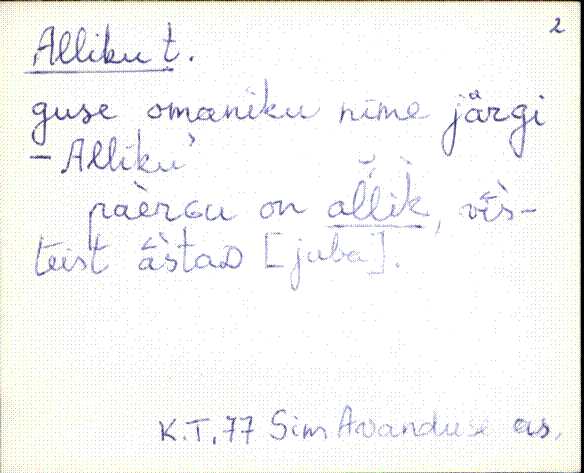 2
Alliku t.
guse omaniku nime järgi
– Alliku'
paèrGu on al̆lìk, vī̀s-
teist ā̀staD [juba].
K.T. 77 Sim Avanduse as.